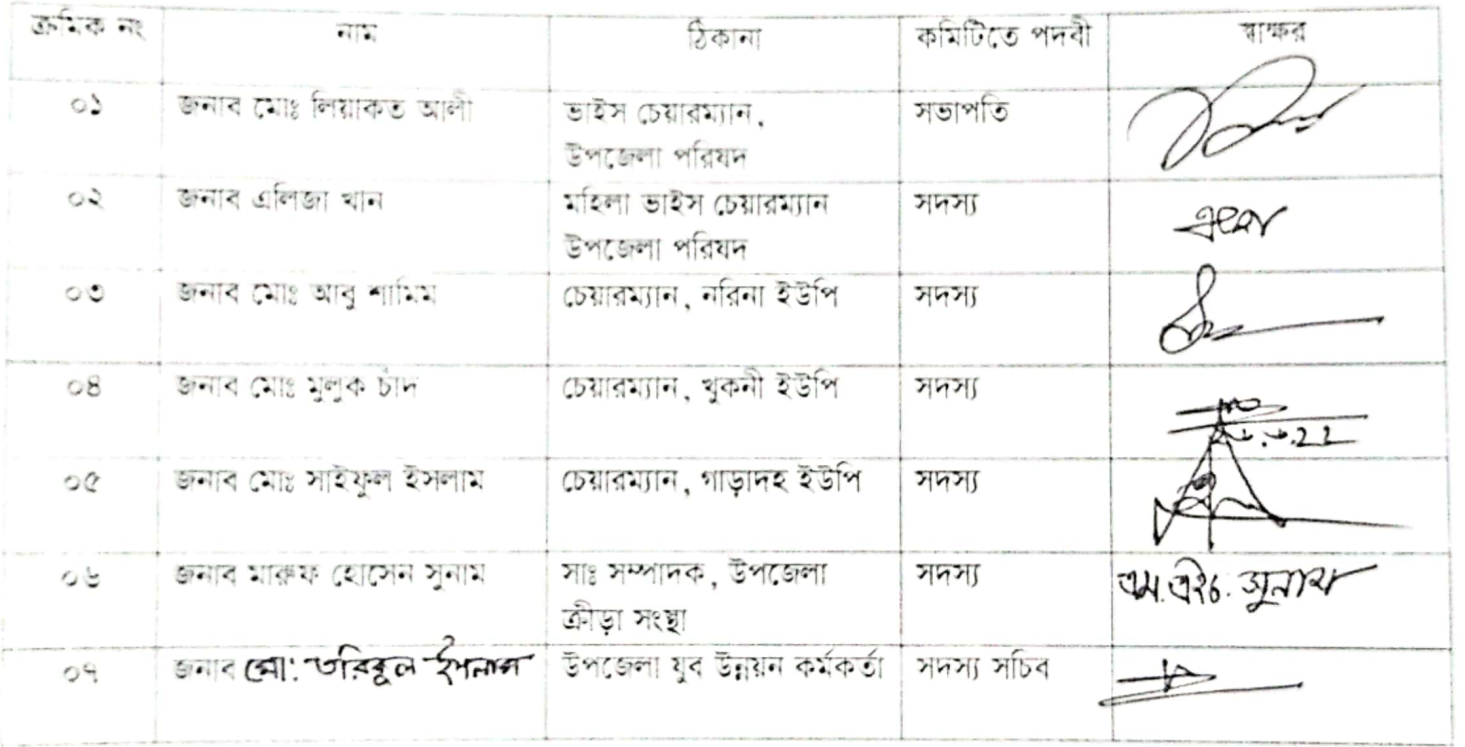 ক্রমিক নং নাম ঠিকানা কমিটিতে পদবী স্বাক্ষর
০১ জনাব মোঃ লিয়াকত আলী ভাইস চেয়ারম্যান, সভাপতি
উপজেলা পরিষদ
০২ জনাব এলিজা খান মহিলা ভাইস চেয়ারম্যান সদস্য
উপজেলা পরিষদ
০৩ জনাব মোঃ আবু শামিম চেয়ারম্যান, নরিনা ইউপি সদস্য
০৪ জনাব মোঃ মুলুক চাঁদ চেয়ারম্যান, খুকনী ইউপি সদস্য
০৫ জনাব মোঃ সাইফুল ইসলাম চেয়ারম্যান, গাড়াদহ ইউপি সদস্য
০৬ জনাব মারুফ হোসেন সুনাম সাঃ সম্পাদক, উপজেলা সদস্য এম. এইচ. সুনাম
ক্রীড়া সংস্থা
০৭ জনাব মো: তরিবুল ইসলাম উপজেলা যুব উন্নয়ন কর্মকর্তা সদস্য সচিব